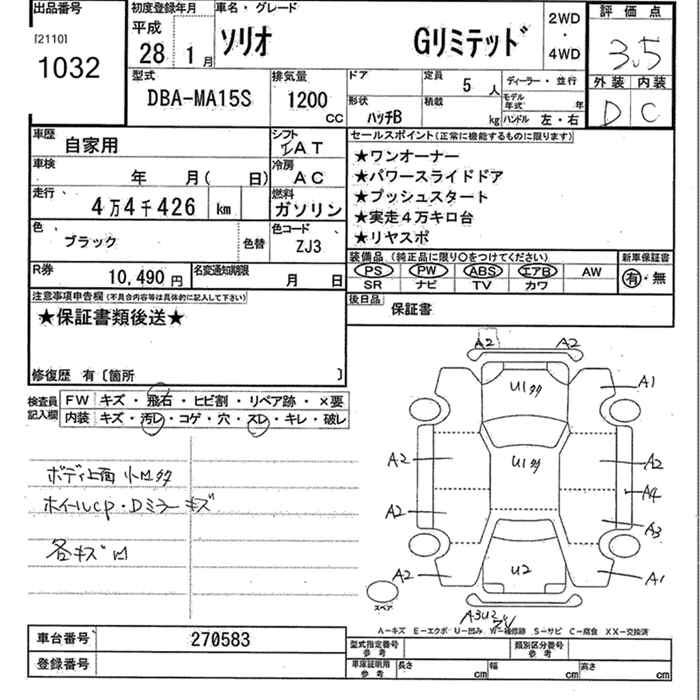 出品番号
[2110]
1032
初度登録年月
平成
28 1月
車名・グレード
ソリオ Gリミテッド
2WD
・
4WD
評価点
3.5
外装 内装
D C
型式
DBA-MA15S
排気量
1200
CC
ドア
形状
ハッチB
定員
5人
積載
kg
ディーラー・並行
モデル年式 年
ハンドル 左・右
車歴
自家用
シフト
AT
車検
年 月( 日)
冷房
AC
走行
4万4千426 km
燃料
ガソリン
色
ブラック
色替
色コード
ZJ3
R券
10,490円
名変通知期限
月 日
セールスポイント(正常に機能するものに限ります)
★ワンオーナー
★パワースライドドア
★プッシュスタート
★実走4万キロ台
★リヤスポ
装備品(純正品に限り○をつけてください)
PS PW ABS エアB AW
SR ナビ TV カワ
新車保証書
有・無
後日品
保証書
注意事項申告欄(不具合内容等は具体的に記入して下さい)
★保証書類後送★
修復歴 有〔箇所 〕
検査員記入欄
FW キズ・飛石・ヒビ割・リペア跡・×要
内装 キズ・汚レ・コゲ・穴・スレ・キレ・破レ
ボディ上面 小凹多
ホイールCP・Dミラーキズ
各キズ凹
A2 A2
U1多
A1
A2
U1多
A2
A4
A2
A3
A2
U2
A1
スペア
A3U2
A-キズ E-エクボ U-凹み W-補修跡 S-サビ C-腐食 XX-交換済
車台番号
270583
登録番号
型式指定番号
参考
類別区分番号
参考
車庫証明用
参考
長さ cm
幅 cm
高さ cm